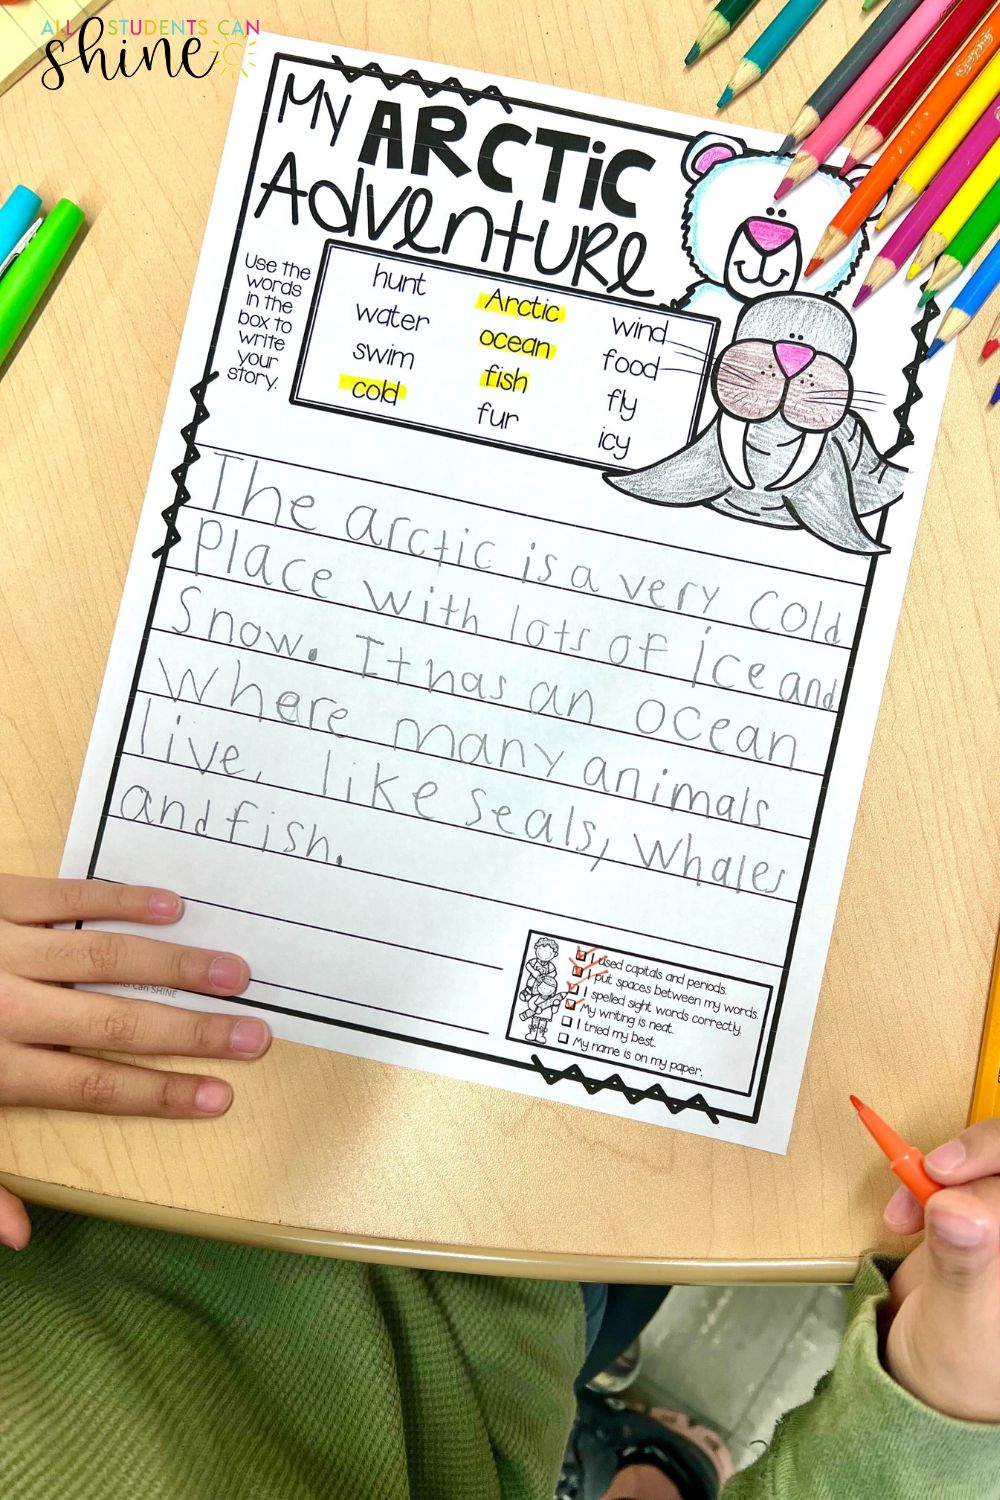 ALL STUDENTS CAN
shine
My ARCTiC
Adventure
Use the
words
in the
box to
write
your
story.
hunt Arctic wind
water ocean food
swim fish fly
cold fur icy
The arctic is a very cold
Place with lots of ice and
Snow. It has an ocean
Where many animals
live, like seals, whales
and fish.
I used capitals and periods.
I put spaces between my words.
I spelled sight words correctly
My writing is neat.
I tried my best.
My name is on my paper.
Can SHINE